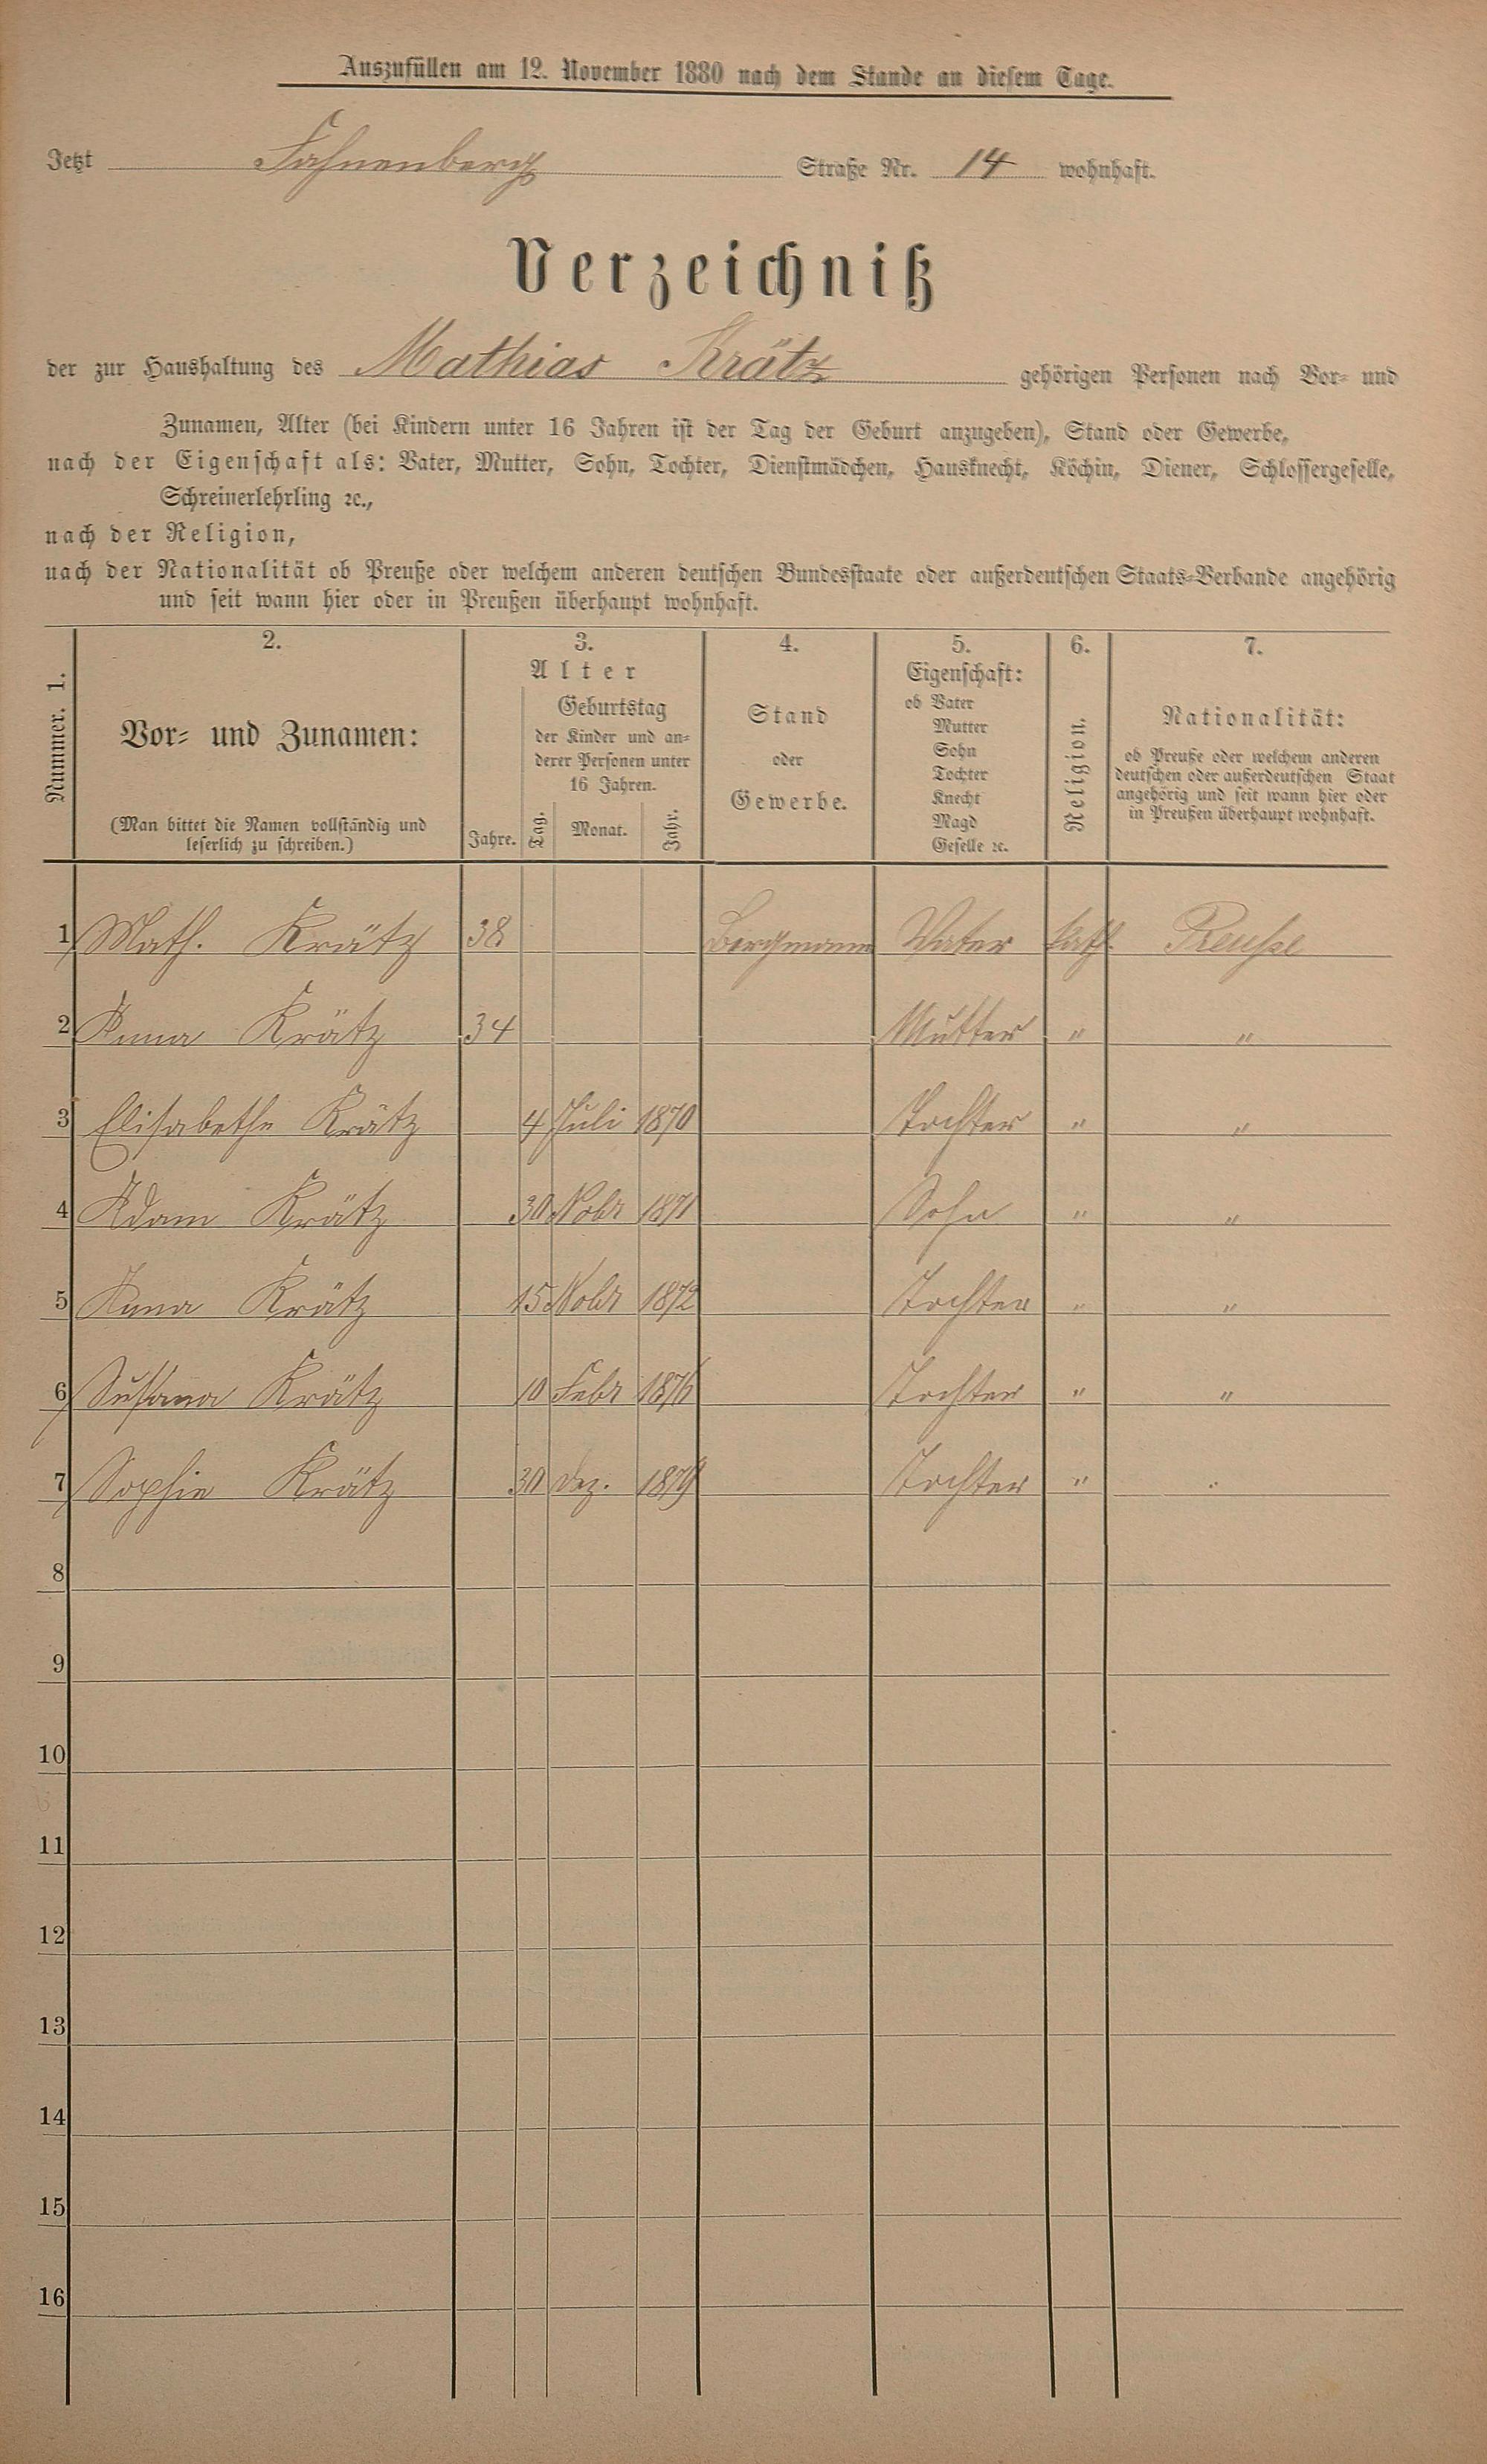 Auszufüllen am 12. November 1880 nach dem Stande an diesem Tage.
Jetzt Fahnenberg Straße Nr. 14 wohnhaft.
Verzeichniß
der zur Haushaltung des Mathias Krätz gehörigen Personen nach Vor- und
Zunamen, Alter (bei Kindern unter 16 Jahren ist der Tag der Geburt anzugeben), Stand oder Gewerbe,
nach der Eigenschaft als: Vater, Mutter, Sohn, Tochter, Dienstmädchen, Hausknecht, Köchin, Diener, Schlossergeselle,
Schreinerlehrling ꝛc.,
nach der Religion,
nach der Nationalität ob Preuße oder welchem anderen deutschen Bundesstaate oder außerdeutschen Staats-Verbande angehörig
und seit wann hier oder in Preußen überhaupt wohnhaft.
Nummer. 1.
2.
Vor- und Zunamen:
(Man bittet die Namen vollständig und
leserlich zu schreiben.)
3.
Alter
Jahre.
Geburtstag
der Kinder und an-
derer Personen unter
16 Jahren.
Tag. Monat. Jahr.
4.
Stand
oder
Gewerbe.
5.
Eigenschaft:
ob Vater
Mutter
Sohn
Tochter
Knecht
Magd
Geselle ꝛc.
6.
Religion.
7.
Nationalität:
ob Preuße oder welchem anderen
deutschen oder außerdeutschen Staat
angehörig und seit wann hier oder
in Preußen überhaupt wohnhaft.
1 Math. Krätz 38 Bergmann Vater kath. Preuße
2 Anna Krätz 34 Mutter " "
3 Elisabethe Krätz 4 Juli 1870 Tochter " "
4 Adam Krätz 30 Nobr 1871 Sohn " "
5 Anna Krätz 15 Nobr 1872 Tochter " "
6 Susana Krätz 10 Febr 1876 Tochter " "
7 Sophie Krätz 30 Dez. 1879 Tochter " "
8
9
10
11
12
13
14
15
16